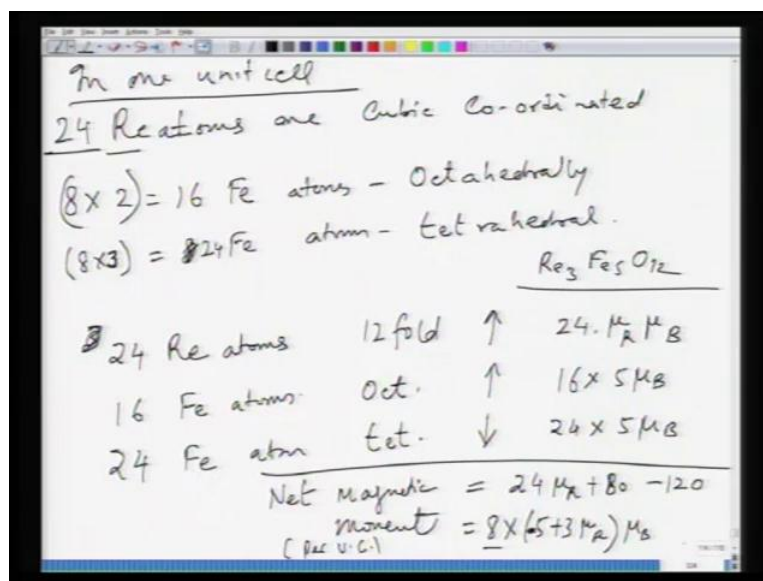 In one unit cell
24 Re atoms are Cubic Co-ordinated
(8 x 2) = 16 Fe atoms - Octahedrally
(8x3) = 24 Fe atom - tetrahedral.
Re3 Fe5 O12
24 Re atoms 12 fold ↑ 24. μR μB
16 Fe atoms. Oct. ↑ 16 x 5 μB
24 Fe atom tet. ↓ 24 x 5 μB
Net magnetic = 24 μR + 80 - 120
moment = 8 x (-5 + 3 μR) μB
(per U.C.)